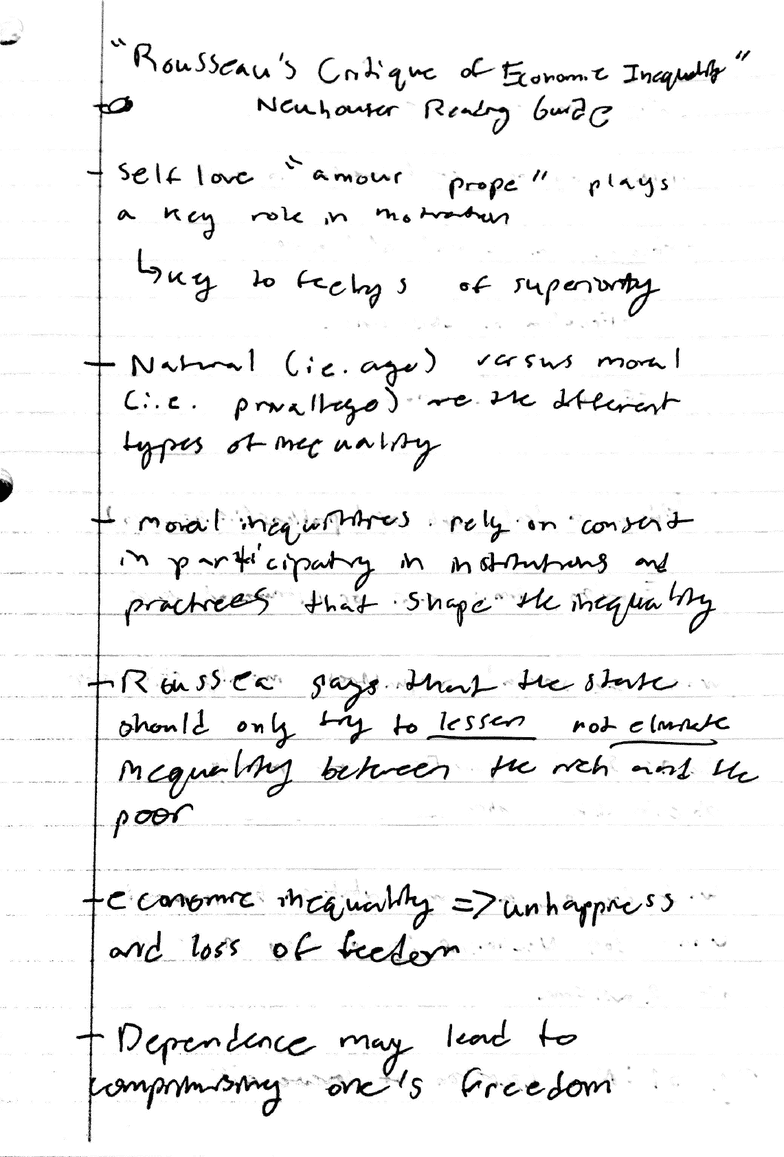 "Rousseau's Critique of Economic Inequality"
Neuhouser Reading Guide
- self love "amour prope" plays
a key role in motivation
↳ key to feelings of superiority
- Natural (i.e. age) versus moral
(i.e. privallege) are the different
types of inequality
- moral inequalities rely on consent
in participatry in institutions and
practices that shape the inequality
- Roussea says that the state
should only try to lessen not elminate
inequality between the rich and the
poor
- economic inequality => unhappiness
and loss of feedom
- Dependence may lead to
compromising one's freedom